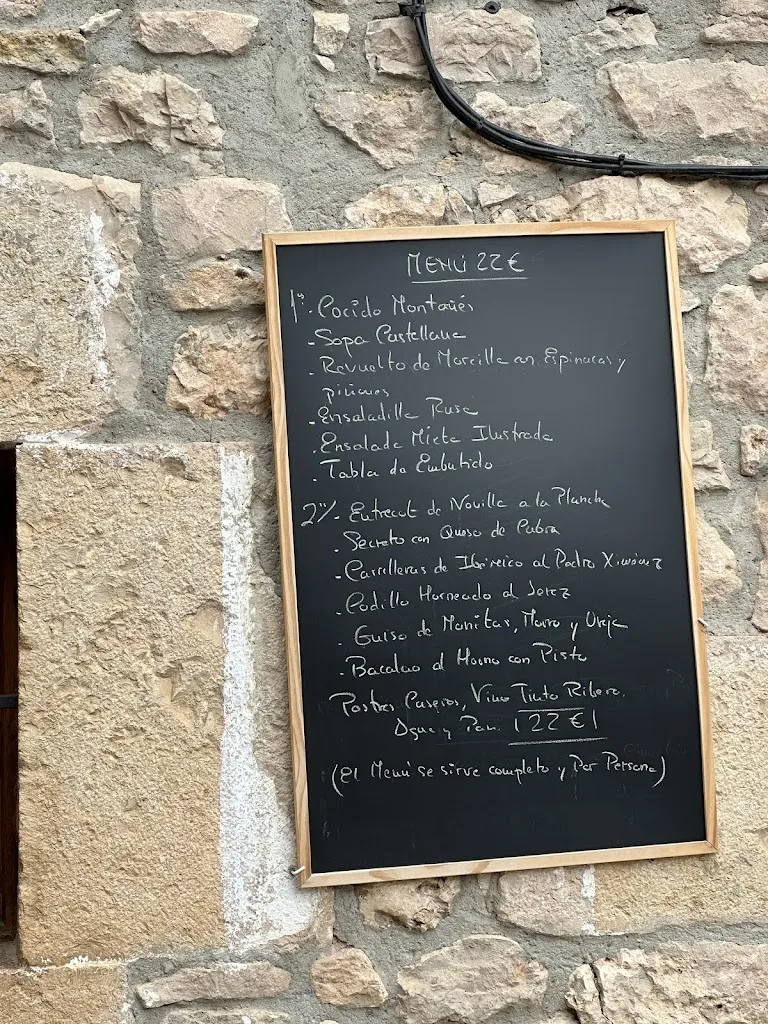 MENÚ 22€
1º. Cocido Montañés
- Sopa Castellana
- Revuelto de Morcilla con Espinacas y
piñones
- Ensaladilla Rusa
. Ensalada Mixta Ilustrada
. Tabla de Embutido
2º/. Entrecot de Novilla a la Plancha
. Secreto con Queso de Cabra
- Carrilleras de Ibérico al Pedro Ximénez
. Codillo Horneado al Jerez
. Guiso de Manitas, Morro y Oreja
- Bacalao al Horno con Pisto
Postres Caseros, Vino Tinto Ribera.
Agua y Pan. ¡22€!
(El Menú se sirve completo y Por Persona)